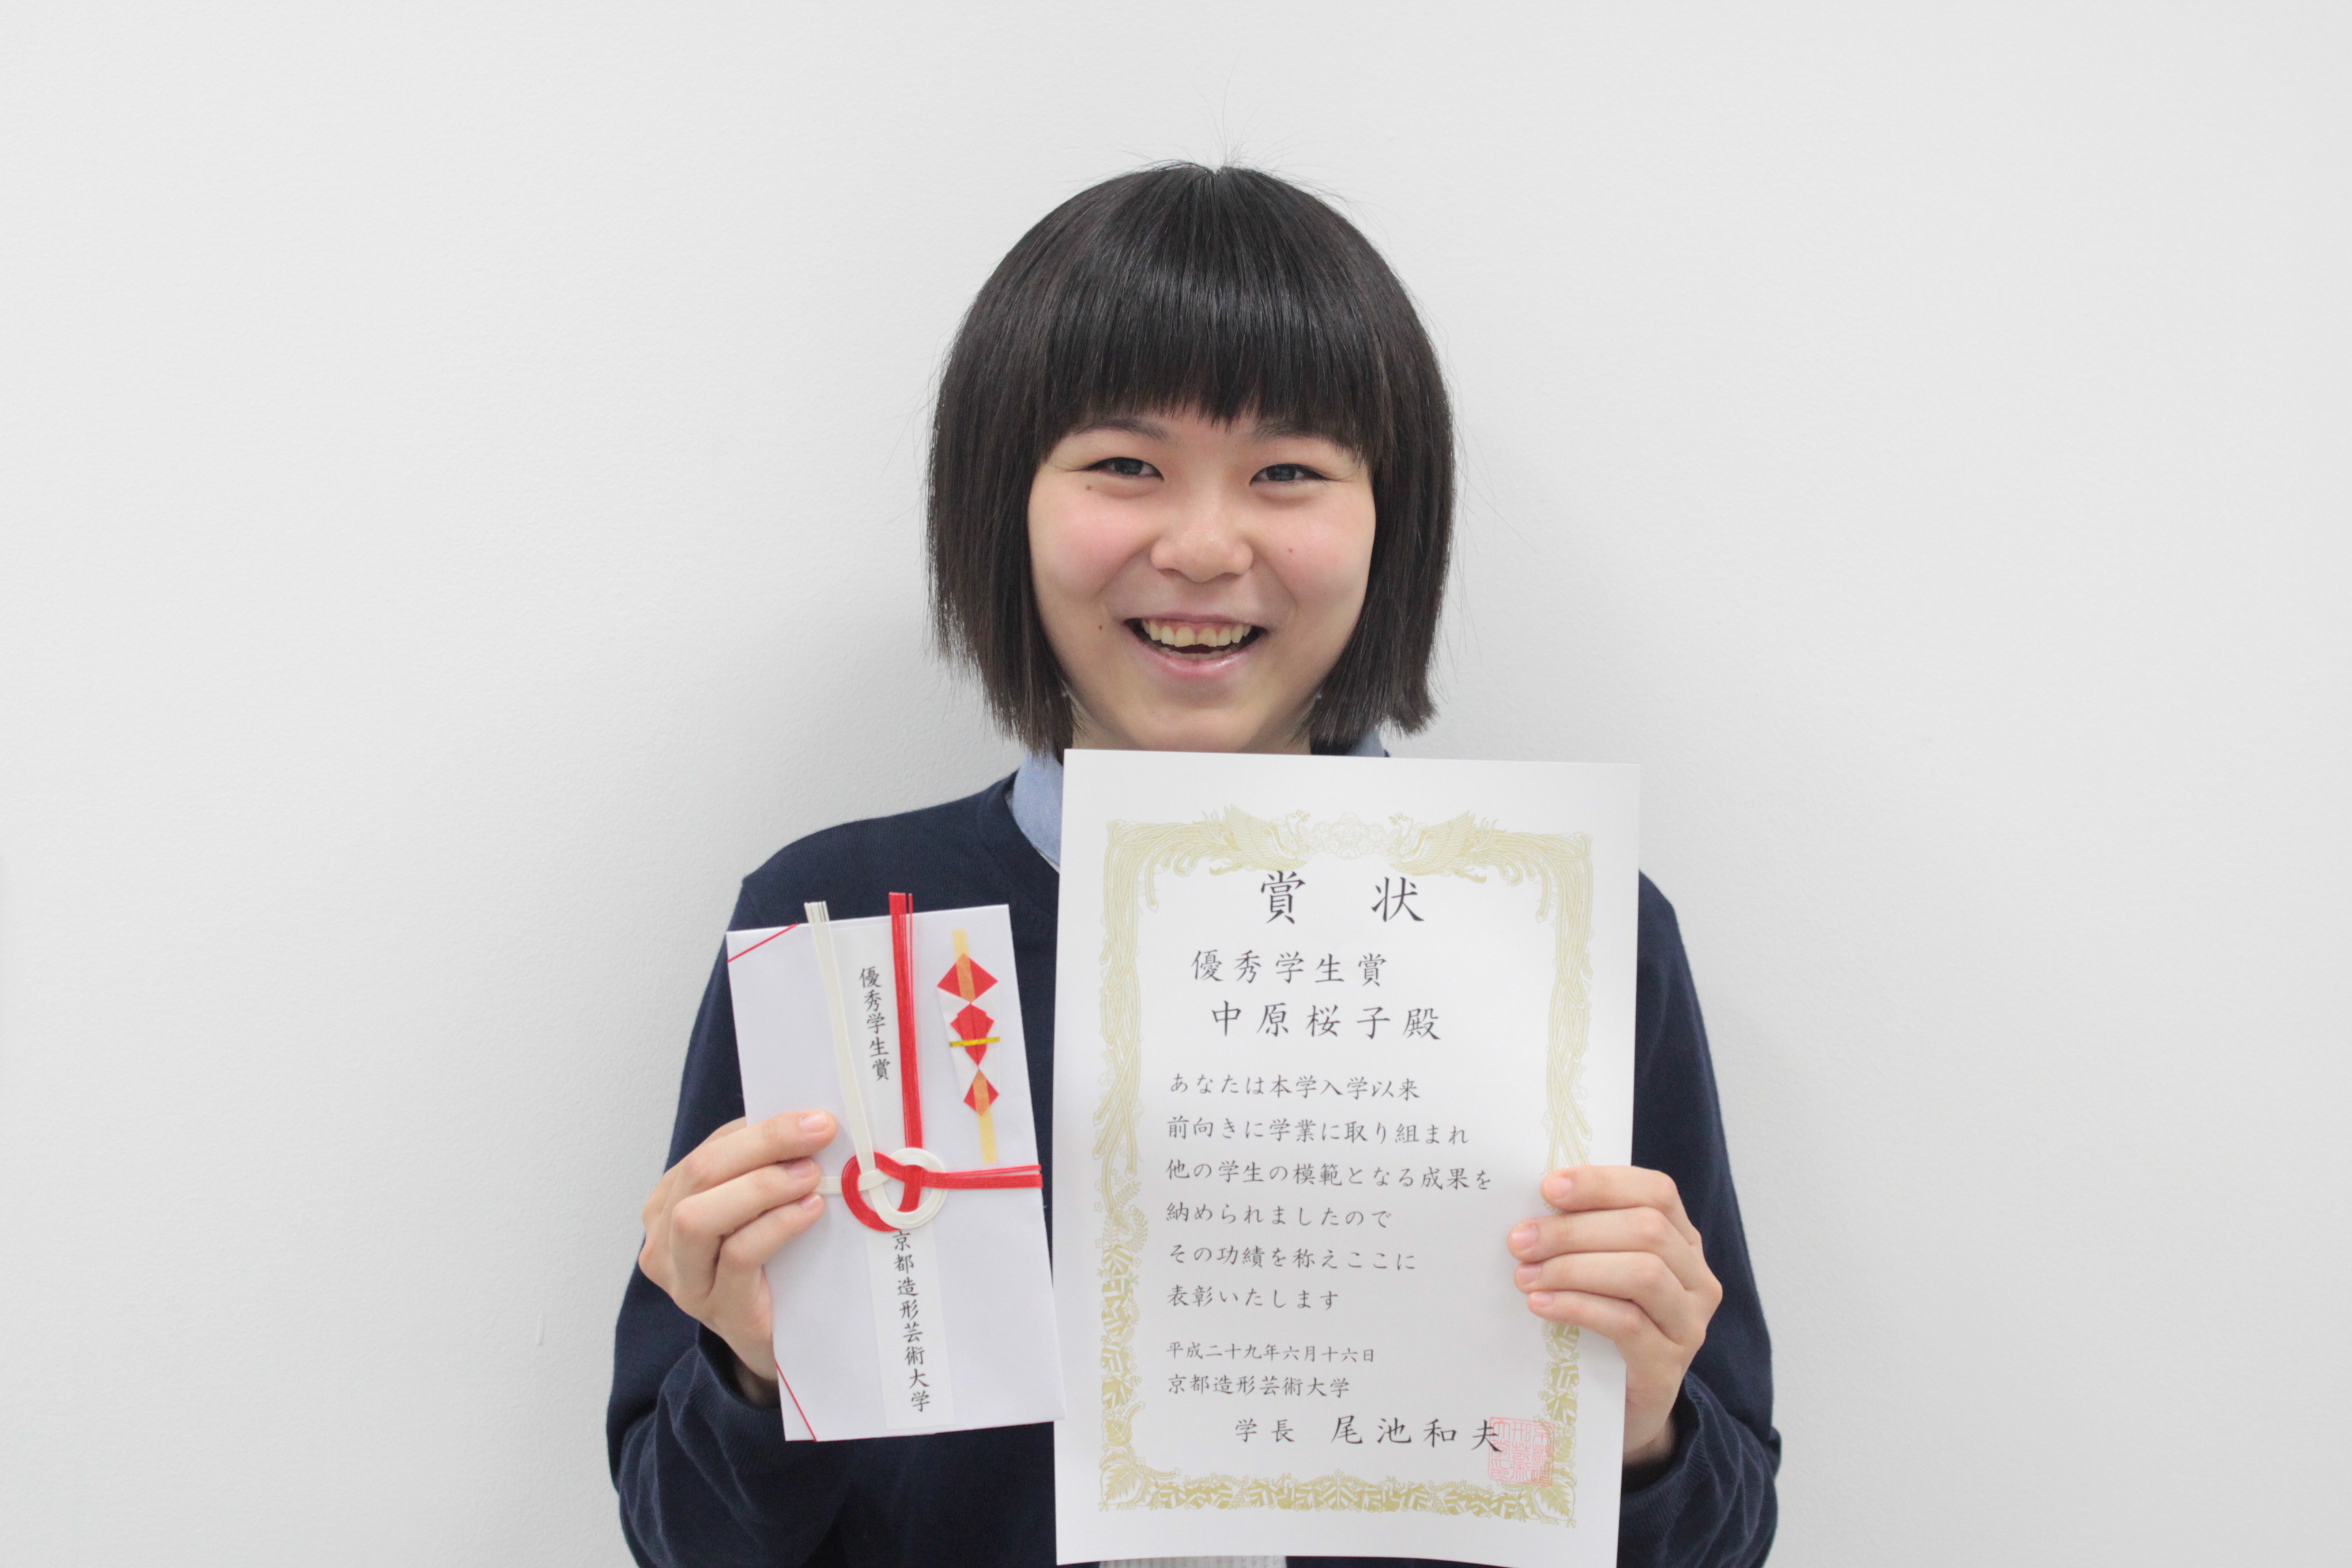 優秀学生賞
京都造形芸術大学
賞状
優秀学生賞
中原桜子殿
あなたは本学入学以来
前向きに学業に取り組まれ
他の学生の模範となる成果を
納められましたので
その功績を称えここに
表彰いたします
平成二十九年六月十六日
京都造形芸術大学
学長 尾池和夫